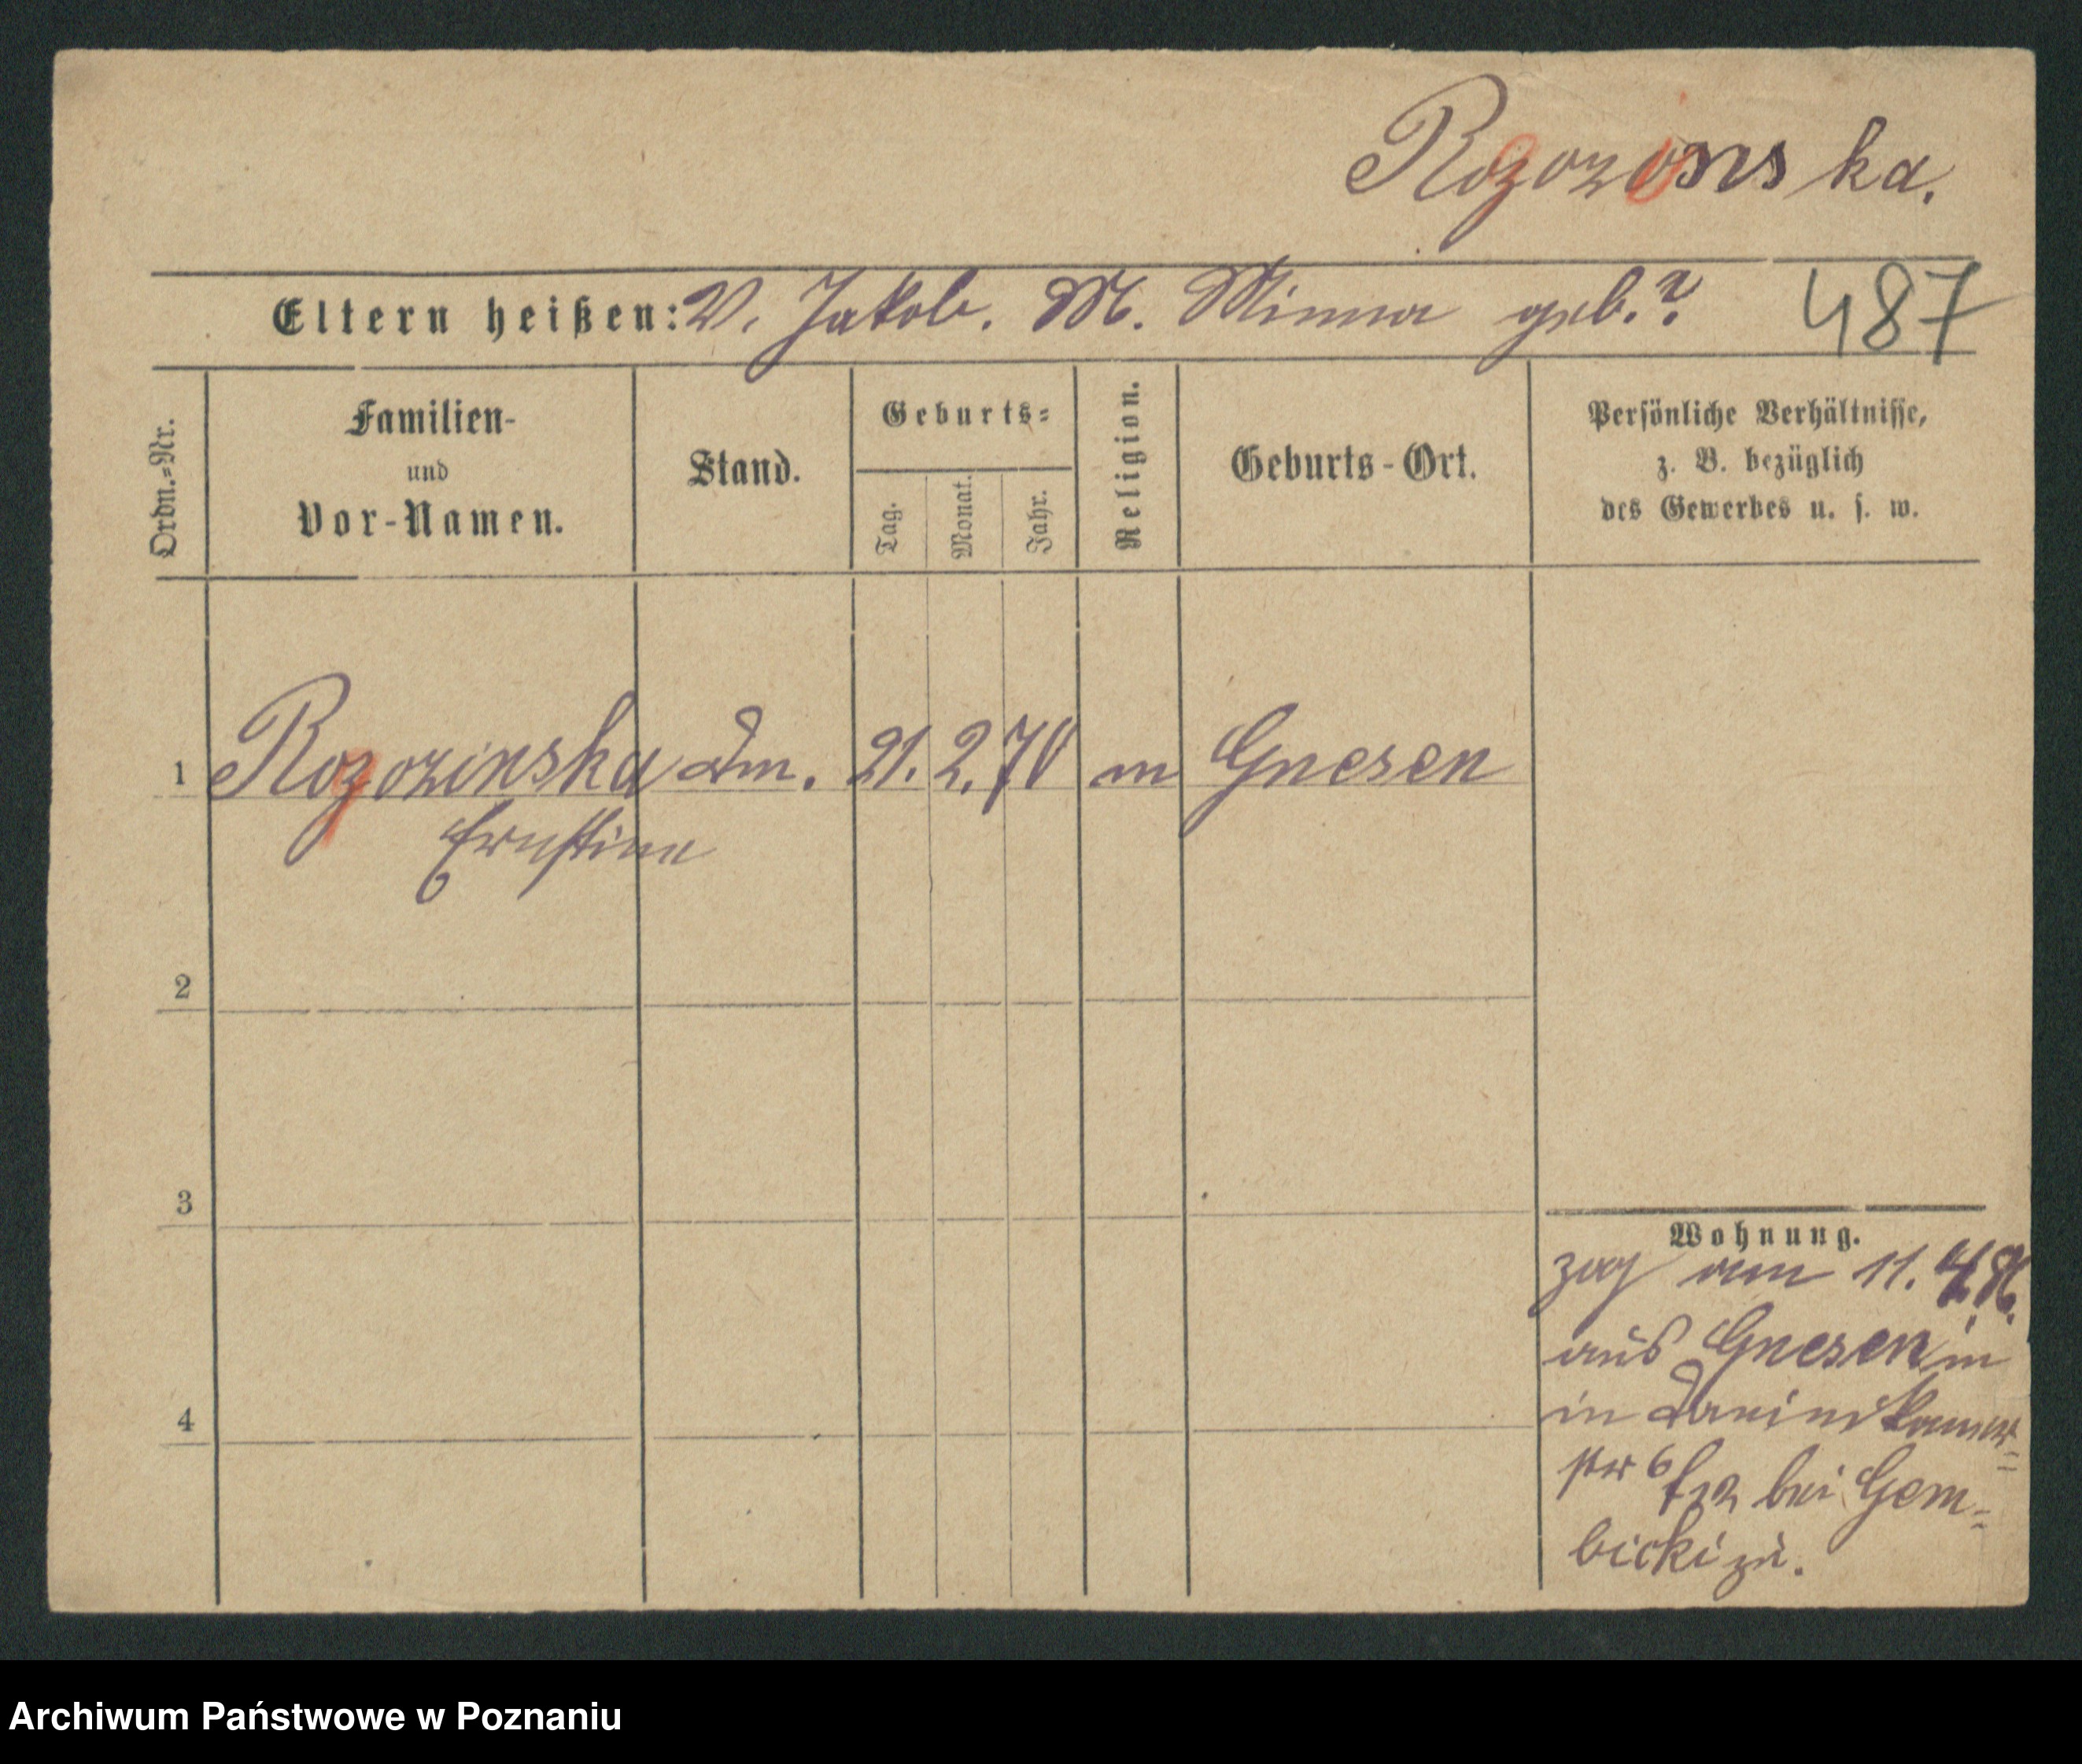 Rogozinska.
Eltern heißen: V. Jakob. M. Minna geb.?
487
Ordn.=Nr.
Familien-
und
Vor-Namen.
Stand.
Geburts=
Tag.
Monat.
Jahr.
Religion.
Geburts-Ort.
Persönliche Verhältnisse,
z. B. bezüglich
des Gewerbes u. s. w.
1 Rogozinska 21. 2. 70 m Gnesen
Ernstine
2
3
4
Wohnung.
zog am 11.
aus Gnesen
in
6 bei Gem-
bicki zu.
Archiwum Państwowe w Poznaniu